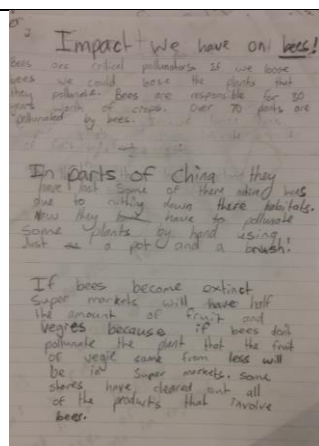 Impact we have on bees!
Bees are critical pollunators. If we loose
bees we could loose the plants that
they pollunate. Bees are responsible for 30
years worth of crops. Over 70 plants are
pollunated by bees.
In parts of China they
have lost some of there native bees
due to cutting down there habitats.
Now they have to pollunate
some plants by hand using
Just a pot and a brush!
If bees become extinct
super markets will have half
the amount of fruit and
vegies because if bees don't
pollunate the plant that the fruit
or vegie came from less will
be in super markets. Some
stores have cleared out all
of the products that involve
bees.